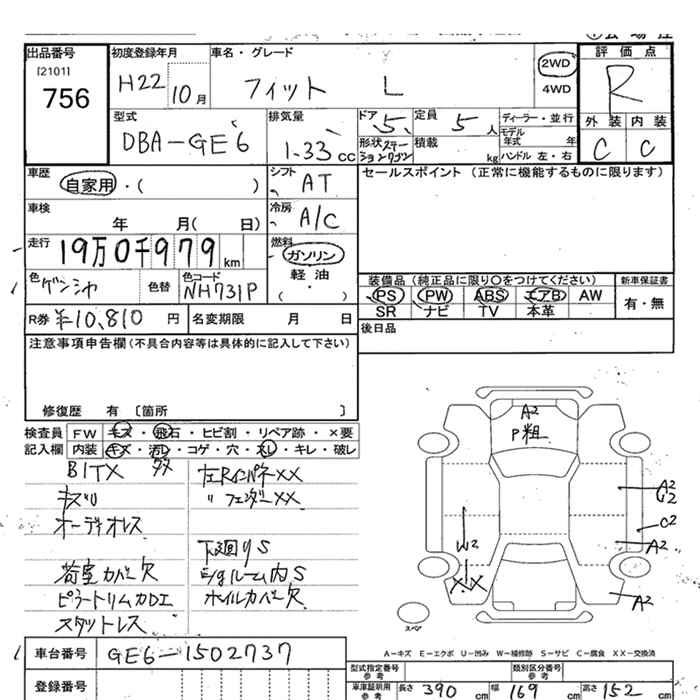 出品番号 初度登録年月 車名・グレード 評価点
[2101] 756 H22 10月 フィット L 2WD 4WD R
型式 排気量 ドア 定員 ディーラー・並行 外装 内装
DBA-GE6 1.33 cc 5 5人 モデル年式 年 C C
形状 ステーションワゴン 積載 kg ハンドル 左・右
車歴 自家用・( ) シフト AT セールスポイント (正常に機能するものに限ります)
車検 年 月( 日) 冷房 A/C
走行 19万0千979km 燃料 ガソリン 軽油 ( ・ )
色 ゲンシャ 色替 色コード NH731P
装備品 (純正品に限り〇をつけてください) 新車保証書
PS PW ABS エアB AW 有・無
SR ナビ TV 本革
R券 ¥10,810 円 名変期限 月 日 後日品
注意事項申告欄 (不具合内容等は具体的に記入して下さい)
修復歴 有 〔箇所 〕
検査員 FW キズ・飛石・ヒビ割・リペア跡・×要
記入欄 内装 キズ・汚レ・コゲ・穴・スレ・キレ・破レ
左RインパネXX
〃フェンダーXX
オーディオレス
下廻りS
荷室カバー欠 E/gルーム内S
ピラートリムカロエ ホイルカバー欠
スタットレス
A2
P粗
A2
U2
C2
A2
W2
XX
A2
スペア
A-キズ E-エクボ U-凹み W-補修跡 S-サビ C-腐食 XX-交換済
車台番号 GE6-1502737
登録番号
型式指定番号 参考 類別区分番号 参考
車庫証明用 参考 長さ 390 cm 幅 169 cm 高さ 152 cm